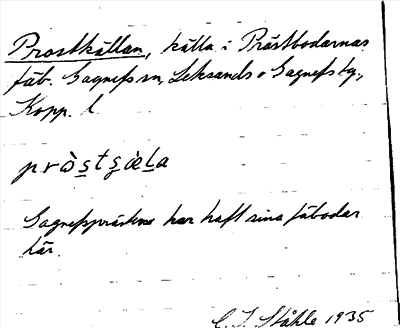 Prostkällan, källa i Prästbodarnas
fäb. Gagnefs sn, Leksands o Gagnefs tg.,
Kopp. l.
pròstšæla
Gagnefsprästerna har haft sina fäbodar
här.
C. I. Ståhle 1935